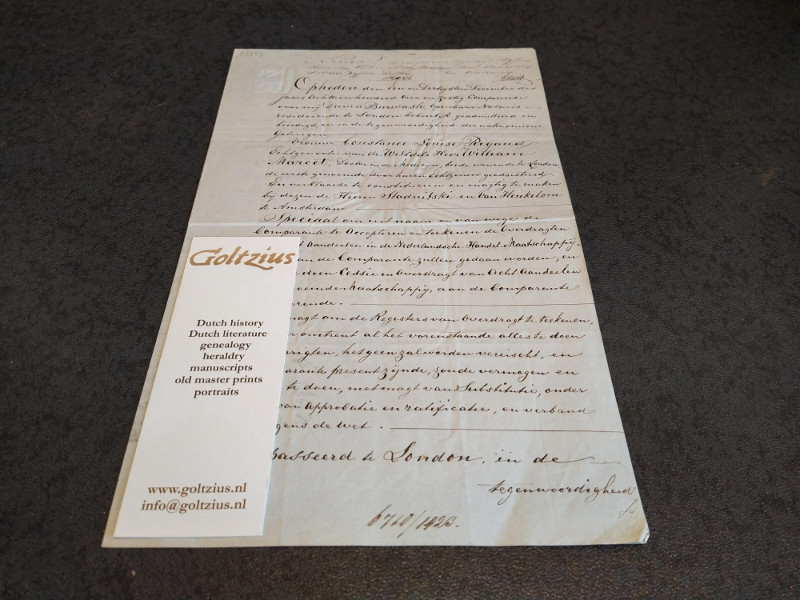 Opheden den een en dertigsten December des
jaars Achttienhonderd drie en zestig Compareerde
voor mij David Burwash Openbaar Notaris
resideerende te London behoorlijk geadmitteerd en
beëedigd, en in de tegenwoordigheid der natenoemene
Getuigen
Vrouwe Constance Louise Rigaud
Echtgenoote van de WelEdele Heer William
Marcet, Doctor in de Medicijn, beide wonende te London
de eerste genoemde door haren Echtgenoot geadsisteerd
En verklaarde te constitueren en magtig te maken
bij dezen de Heeren Stadnitski en Van Heukelom
te Amsterdam
Speciaal om uit naam en van wege de
Comparante te Accepteren en teekenen de Overdragten
Aandeelen in de Nederlandsche Handel Maatschappij,
aan de Comparante zullen gedaan worden, en
doen Cessie en Overdragt van Acht Aandeelen
noemde Maatschappij, aan de Comparante
rende.
magt om de Registers van Overdragt te teekenen,
omtrent al het vorenstaande alles te doen
errigten, hetgeen zal worden vereischt, en
arante present zijnde, zoude vermogen en
te doen, met magt van Substitutie, onder
van Approbatie en ratificatie, en verband
gens de Wet.
Gepasseerd te London, in de
tegenwoordigheid
6710/1423.
Goltzius
Dutch history
Dutch literature
genealogy
heraldry
manuscripts
old master prints
portraits
www.goltzius.nl
info@goltzius.nl